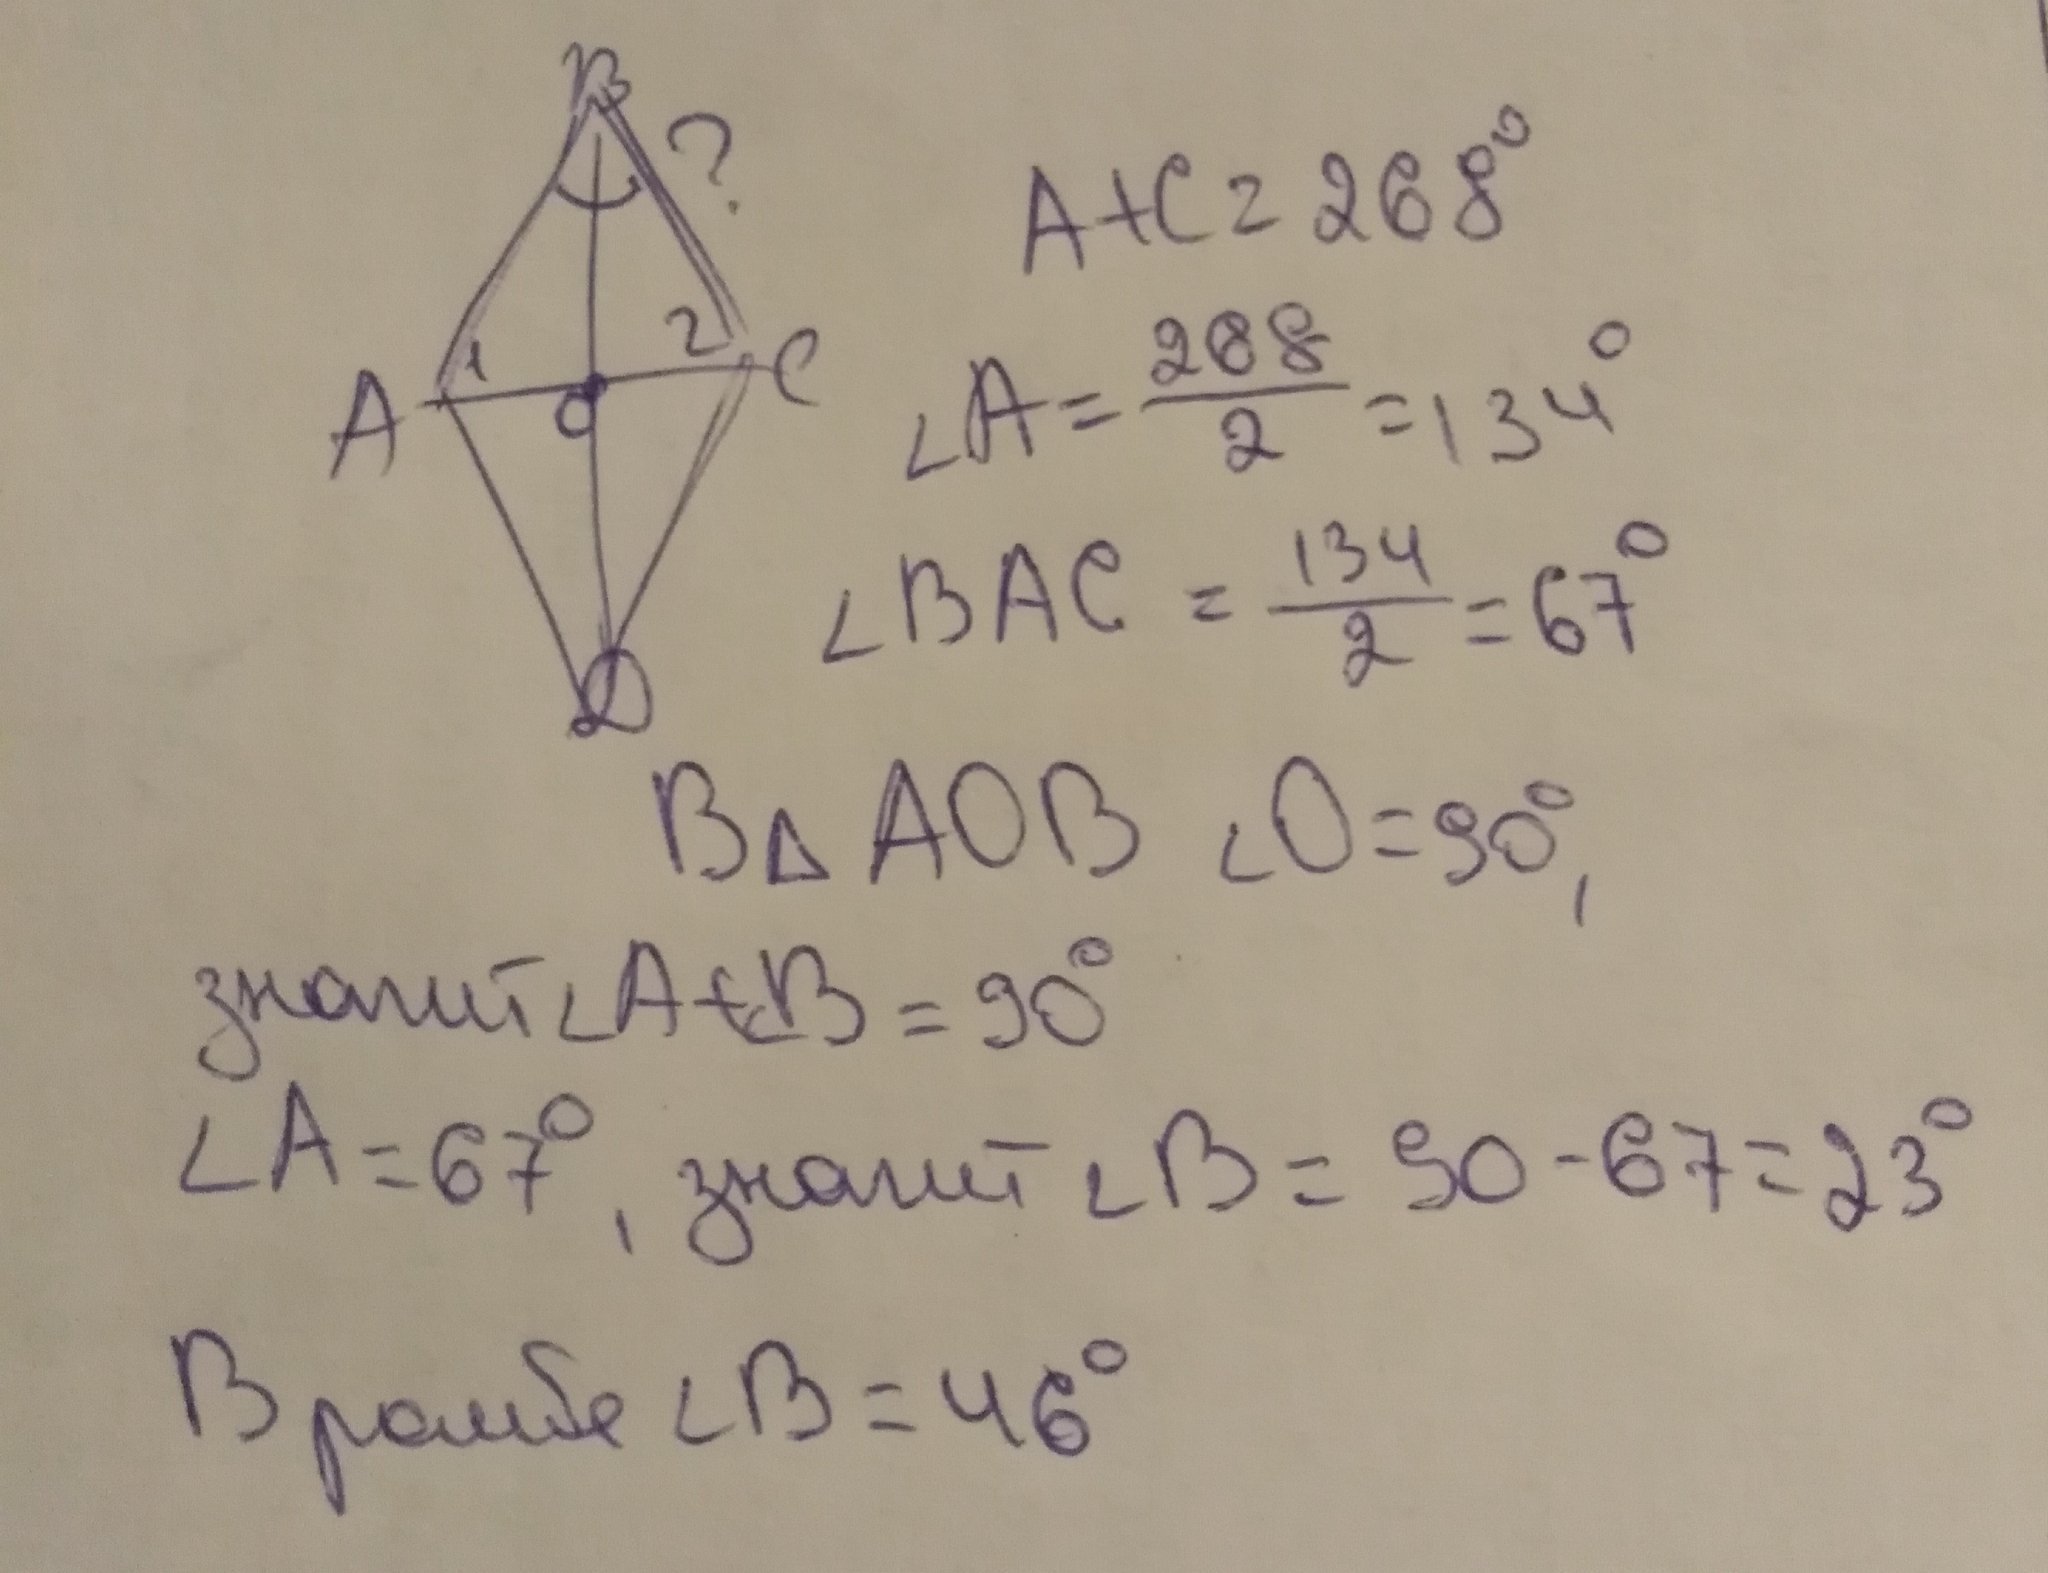 B
?
A 1 2 C
O
D
A+C=268°
∠A=268/2=134°
∠BAC=134/2=67°
В△AOB ∠O=90°,
значит∠A+∠B=90°
∠A=67°, значит ∠B=90-67=23°
В ромбе ∠B=46°